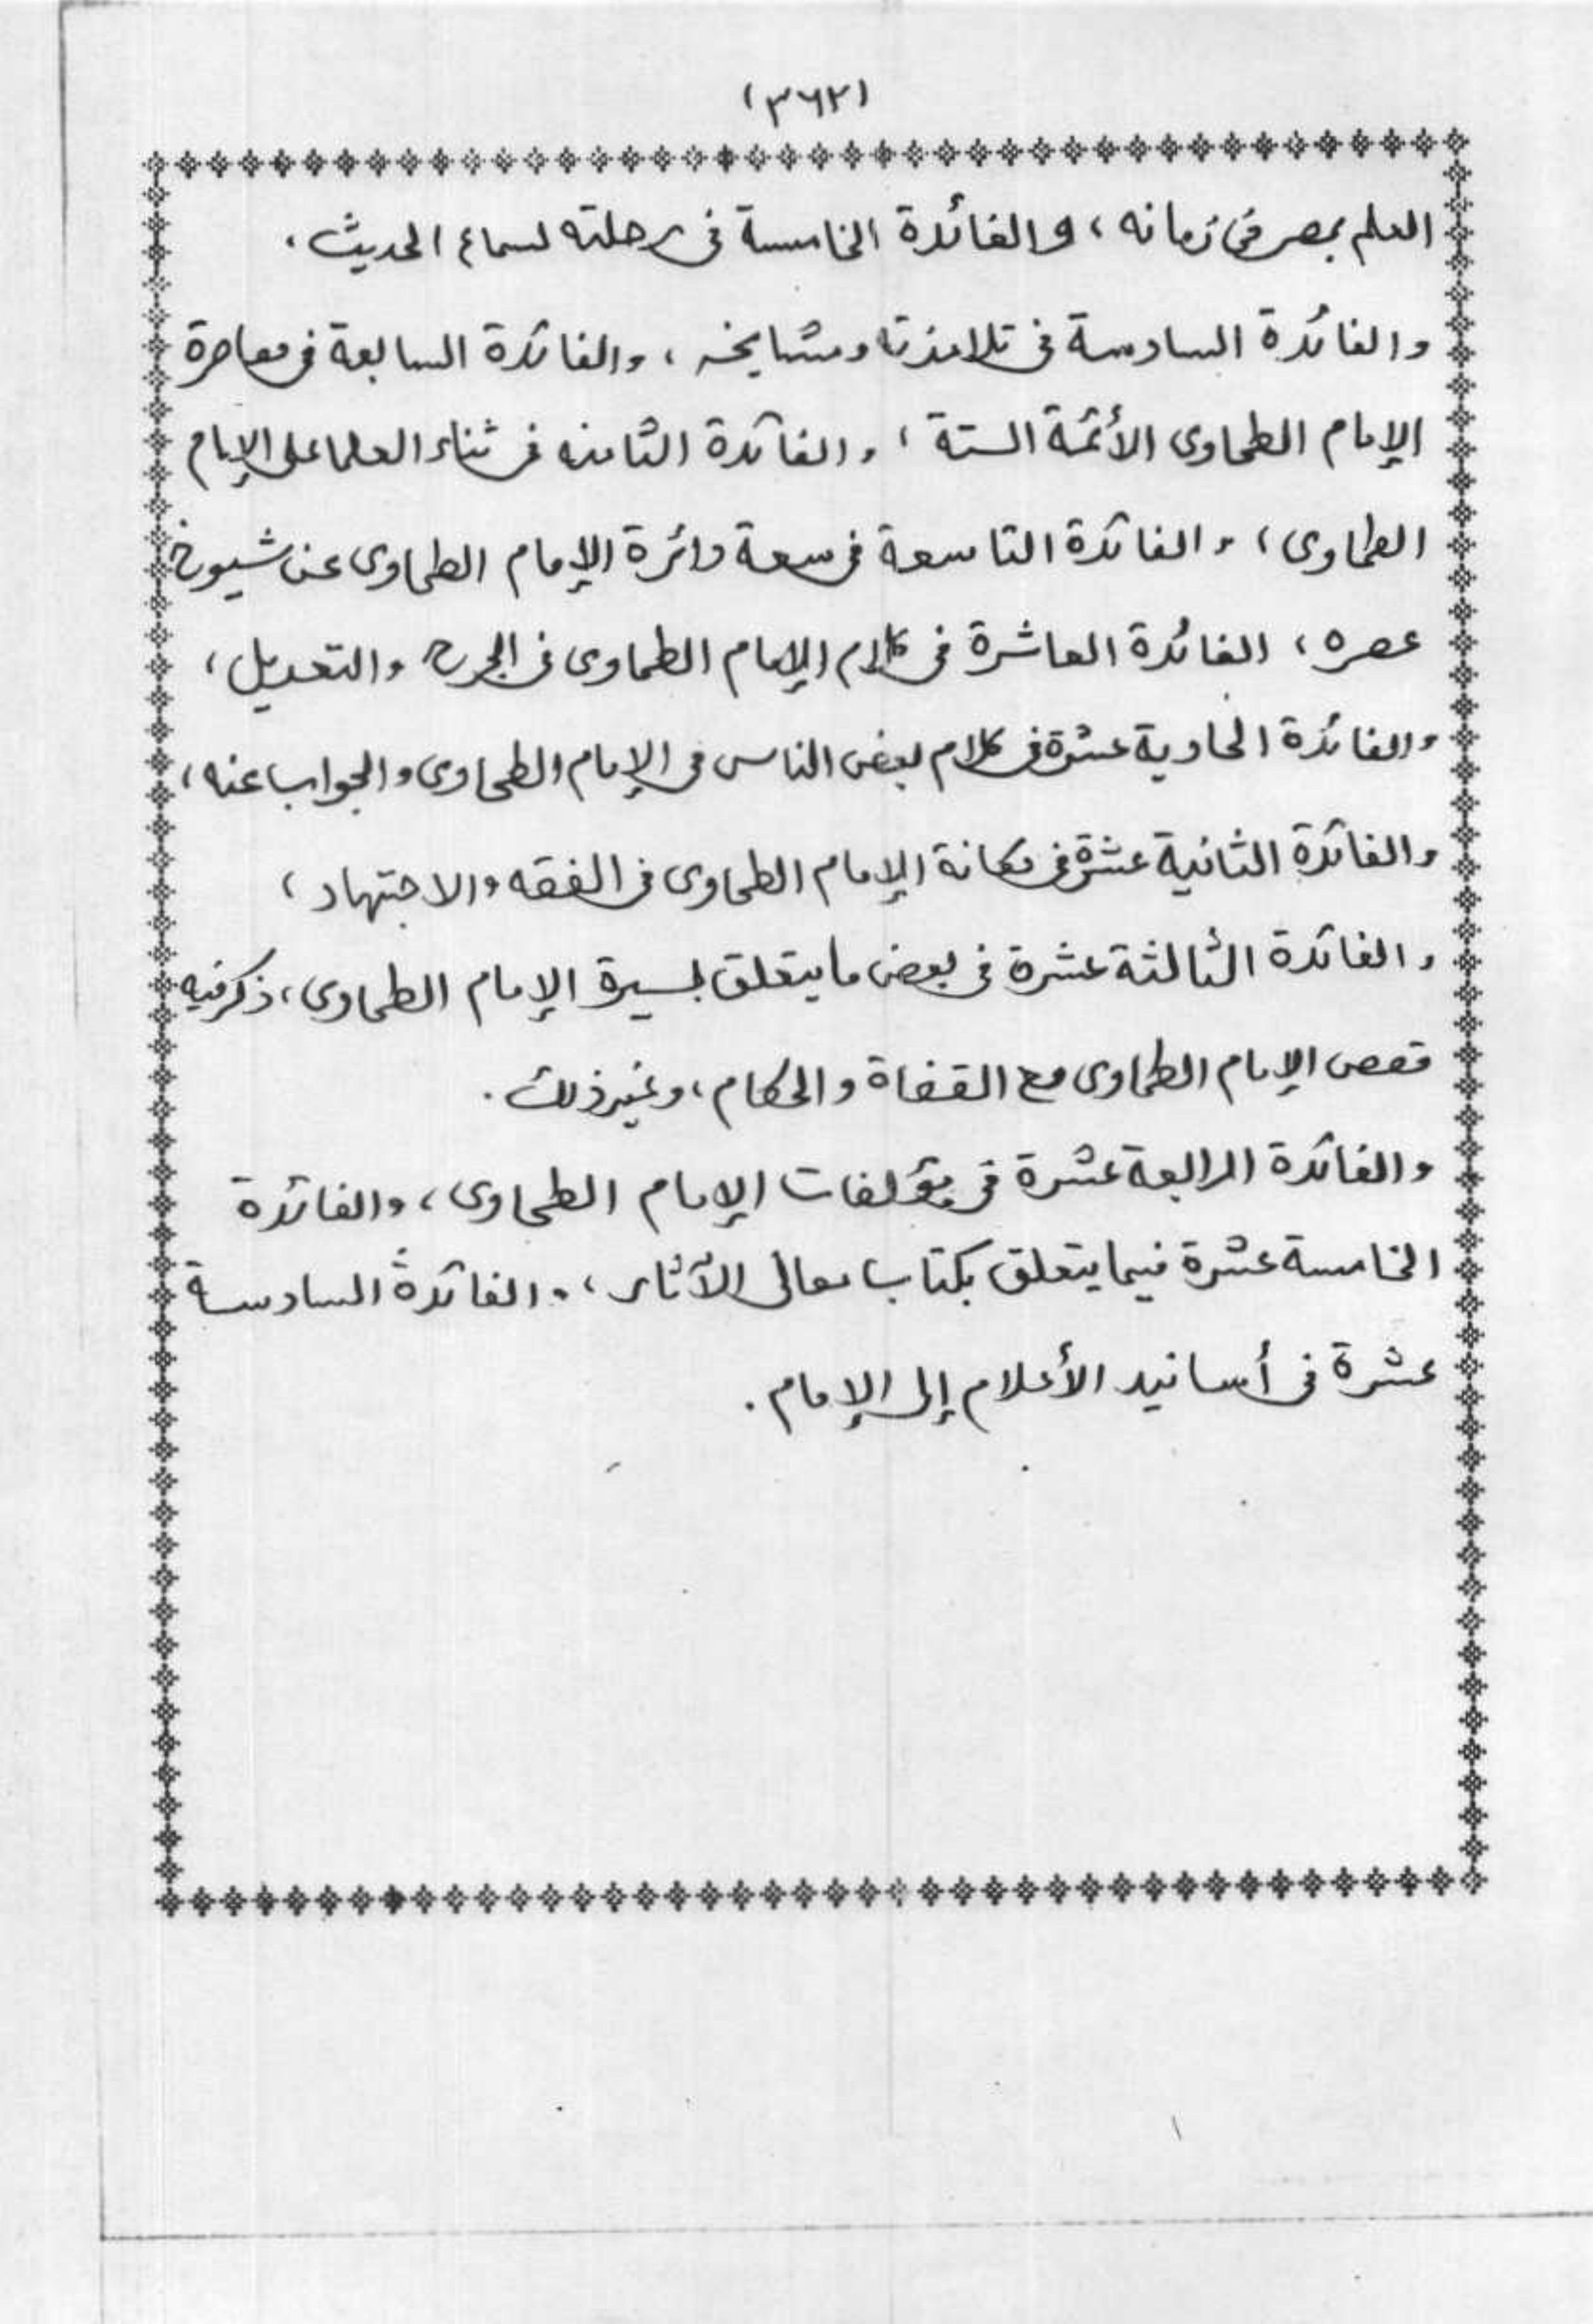 (٣٦٢)
العلم بمصر في زمانه ، والفائدة الخامسة في رحلته لسماع الحديث .
والفائدة السادسة في تلامذته ومشايخه ، والفائدة السابعة في معاصرة
الإمام الطحاوى الأئمة الستة ، والفائدة الثامنه في ثناء العلما على الإمام
الطحاوى ، والفائدة التاسعة في سعة دائرة الإمام الطحاوى عن شيوخ
عصره ، الفائدة العاشرة في كلام الإمام الطحاوى في الجرح والتعديل ،
والفائدة الحادية عشرة في كلام بعض الناس في الإمام الطحاوى والجواب عنه ،
والفائدة الثانية عشرة في مكانة الإمام الطحاوى في الفقه والاجتهاد ،
والفائدة الثالثة عشرة في بعض ما يتعلق بسيرة الإمام الطحاوى ، ذكر فيه
قصص الإمام الطحاوى مع القضاة والحكام ، وغير ذلك .
والفائدة الرابعة عشرة في مؤلفات الإمام الطحاوى ، والفائدة
الخامسة عشرة فيما يتعلق بكتاب معانى الآثار ، والفائدة السادسة
عشرة في أسانيد الأعلام إلى الإمام .